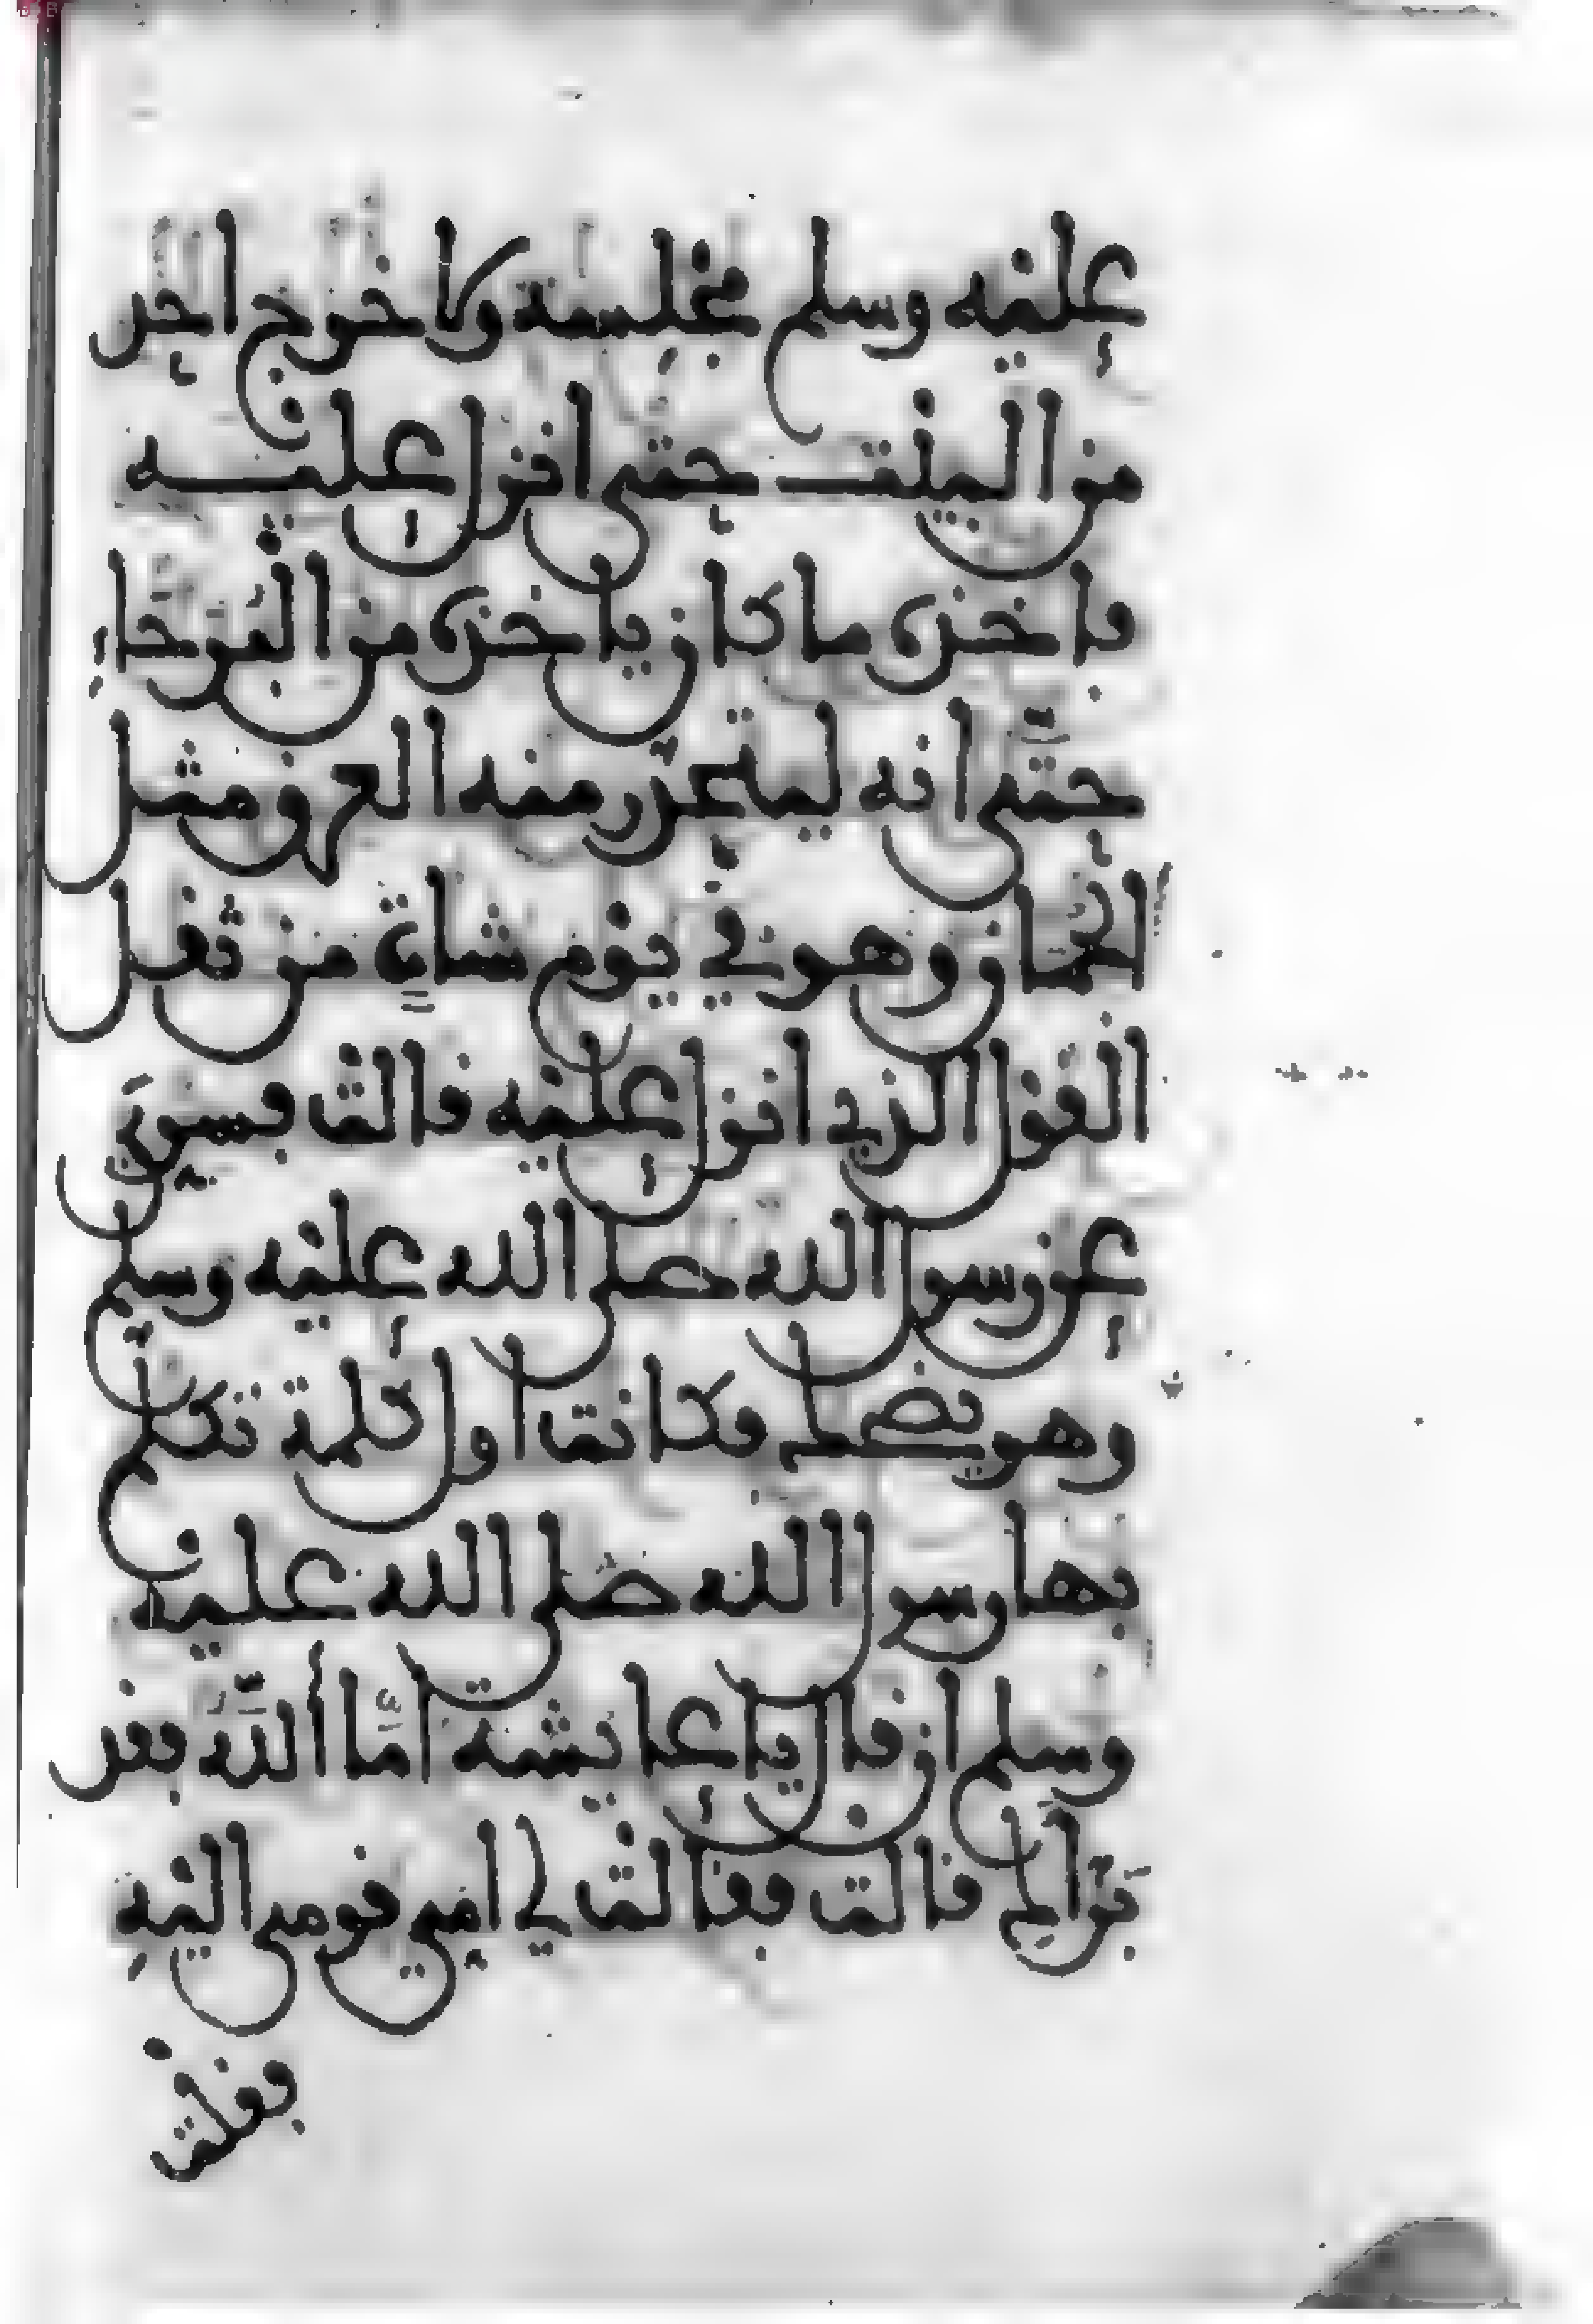 عليه وسلم مجلسه ولا خرج احد
من البيت حتى انزل عليه
فاخذه ما كان ياخذه من البرحاء
حتى انه ليتحدر منه العرق مثل
الجمان وهو في يوم شات من ثقل
القول الذي انزل عليه قالت فسري
عن رسول الله صلى الله عليه وسلم
وهو يضحك فكانت اول كلمة تكلم
بها رسول الله صلى الله عليه
وسلم ان قال يا عايشة امّا الله فقد
برّأك قالت فقالت لي امي قومي اليه
فقلت